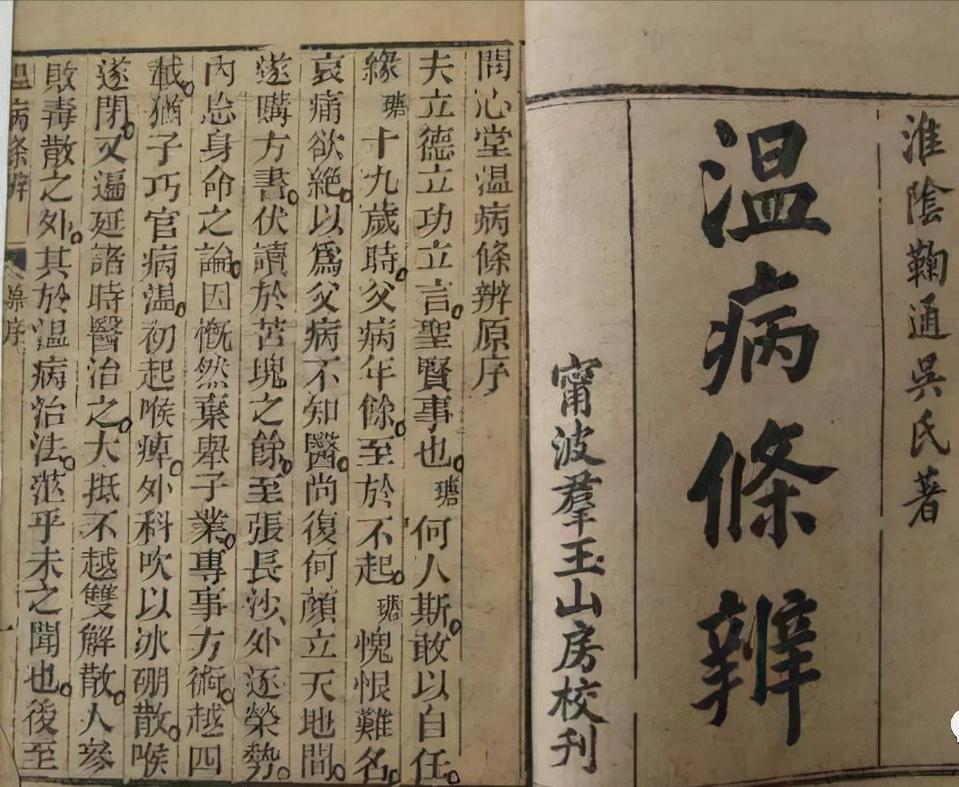 淮陰鞠通吳氏著
温病條辨
甯波羣玉山房校刊
問心堂温病條辨原序
夫立德立功立言。聖賢事也。瑭何人斯。敢以自任。
緣瑭十九歲時。父病年餘。至於不起。瑭愧恨難名。
哀痛欲絕。以爲父病不知醫。尚復何顏立天地間。
遂購方書。伏讀於苦塊之餘。至張長沙外逐榮勢。
內忘身命之論。因慨然棄舉子業。專事方術。越四
載。猶子巧官病温。初起喉痺。外科吹以冰硼散。喉
遂閉。又遍延諸時醫治之。大抵不越雙解散。人參
敗毒散之外。其於温病治法。茫乎未之聞也。後至
温病條辨
序